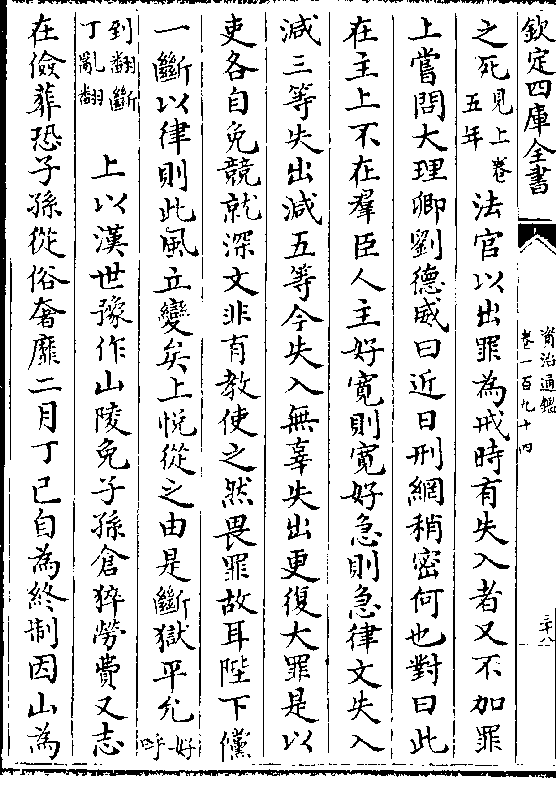 欽定四庫全書
資治通鑑
卷一百九十四
之死見上卷五年法官以出罪為戒時有失入者又不加罪
上嘗問大理卿劉德威曰近日刑網稍密何也對曰此
在主上不在羣臣人主好寛則寛好急則急律文失入
減三等失出減五等今失入無辜失出更復大罪是以
吏各自免競就深文非有教使之然畏罪故耳陛下儻
一斷以律則此風立變矣上悦從之由是斷獄平允好呼
到翻斷丁亂翻上以漢世豫作山陵免子孫倉猝勞費又志
在儉葬恐子孫從俗奢靡二月丁巳自為終制因山為